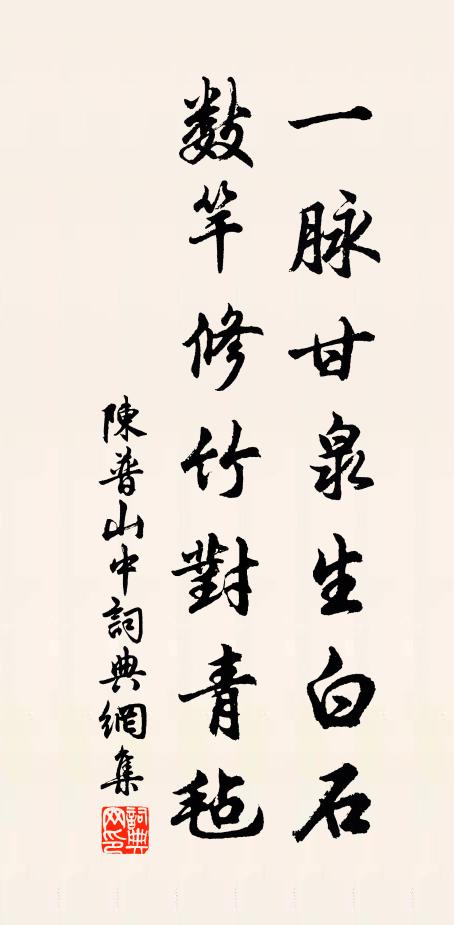 一脉甘泉生白石
數竿修竹對青氈
陳普山中詞典網集
詞典網印